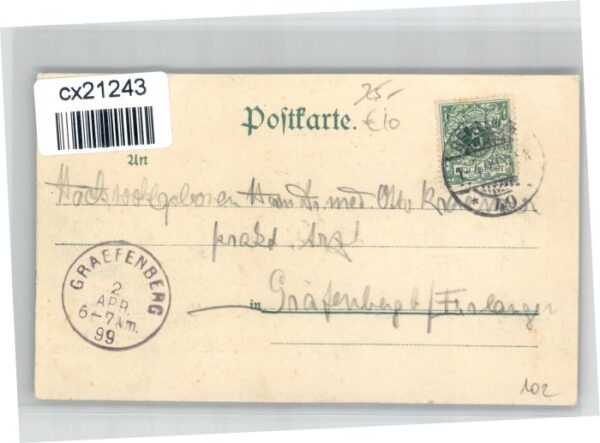 cx21243
25-
Postkarte.
€10
An
Hochwohlgeboren Herrn Dr. med Otto
prakt. Arzt
in Gräfenberg b/Erlangen
GRAEFENBERG
2
APR.
6-7 Nm.
99
102